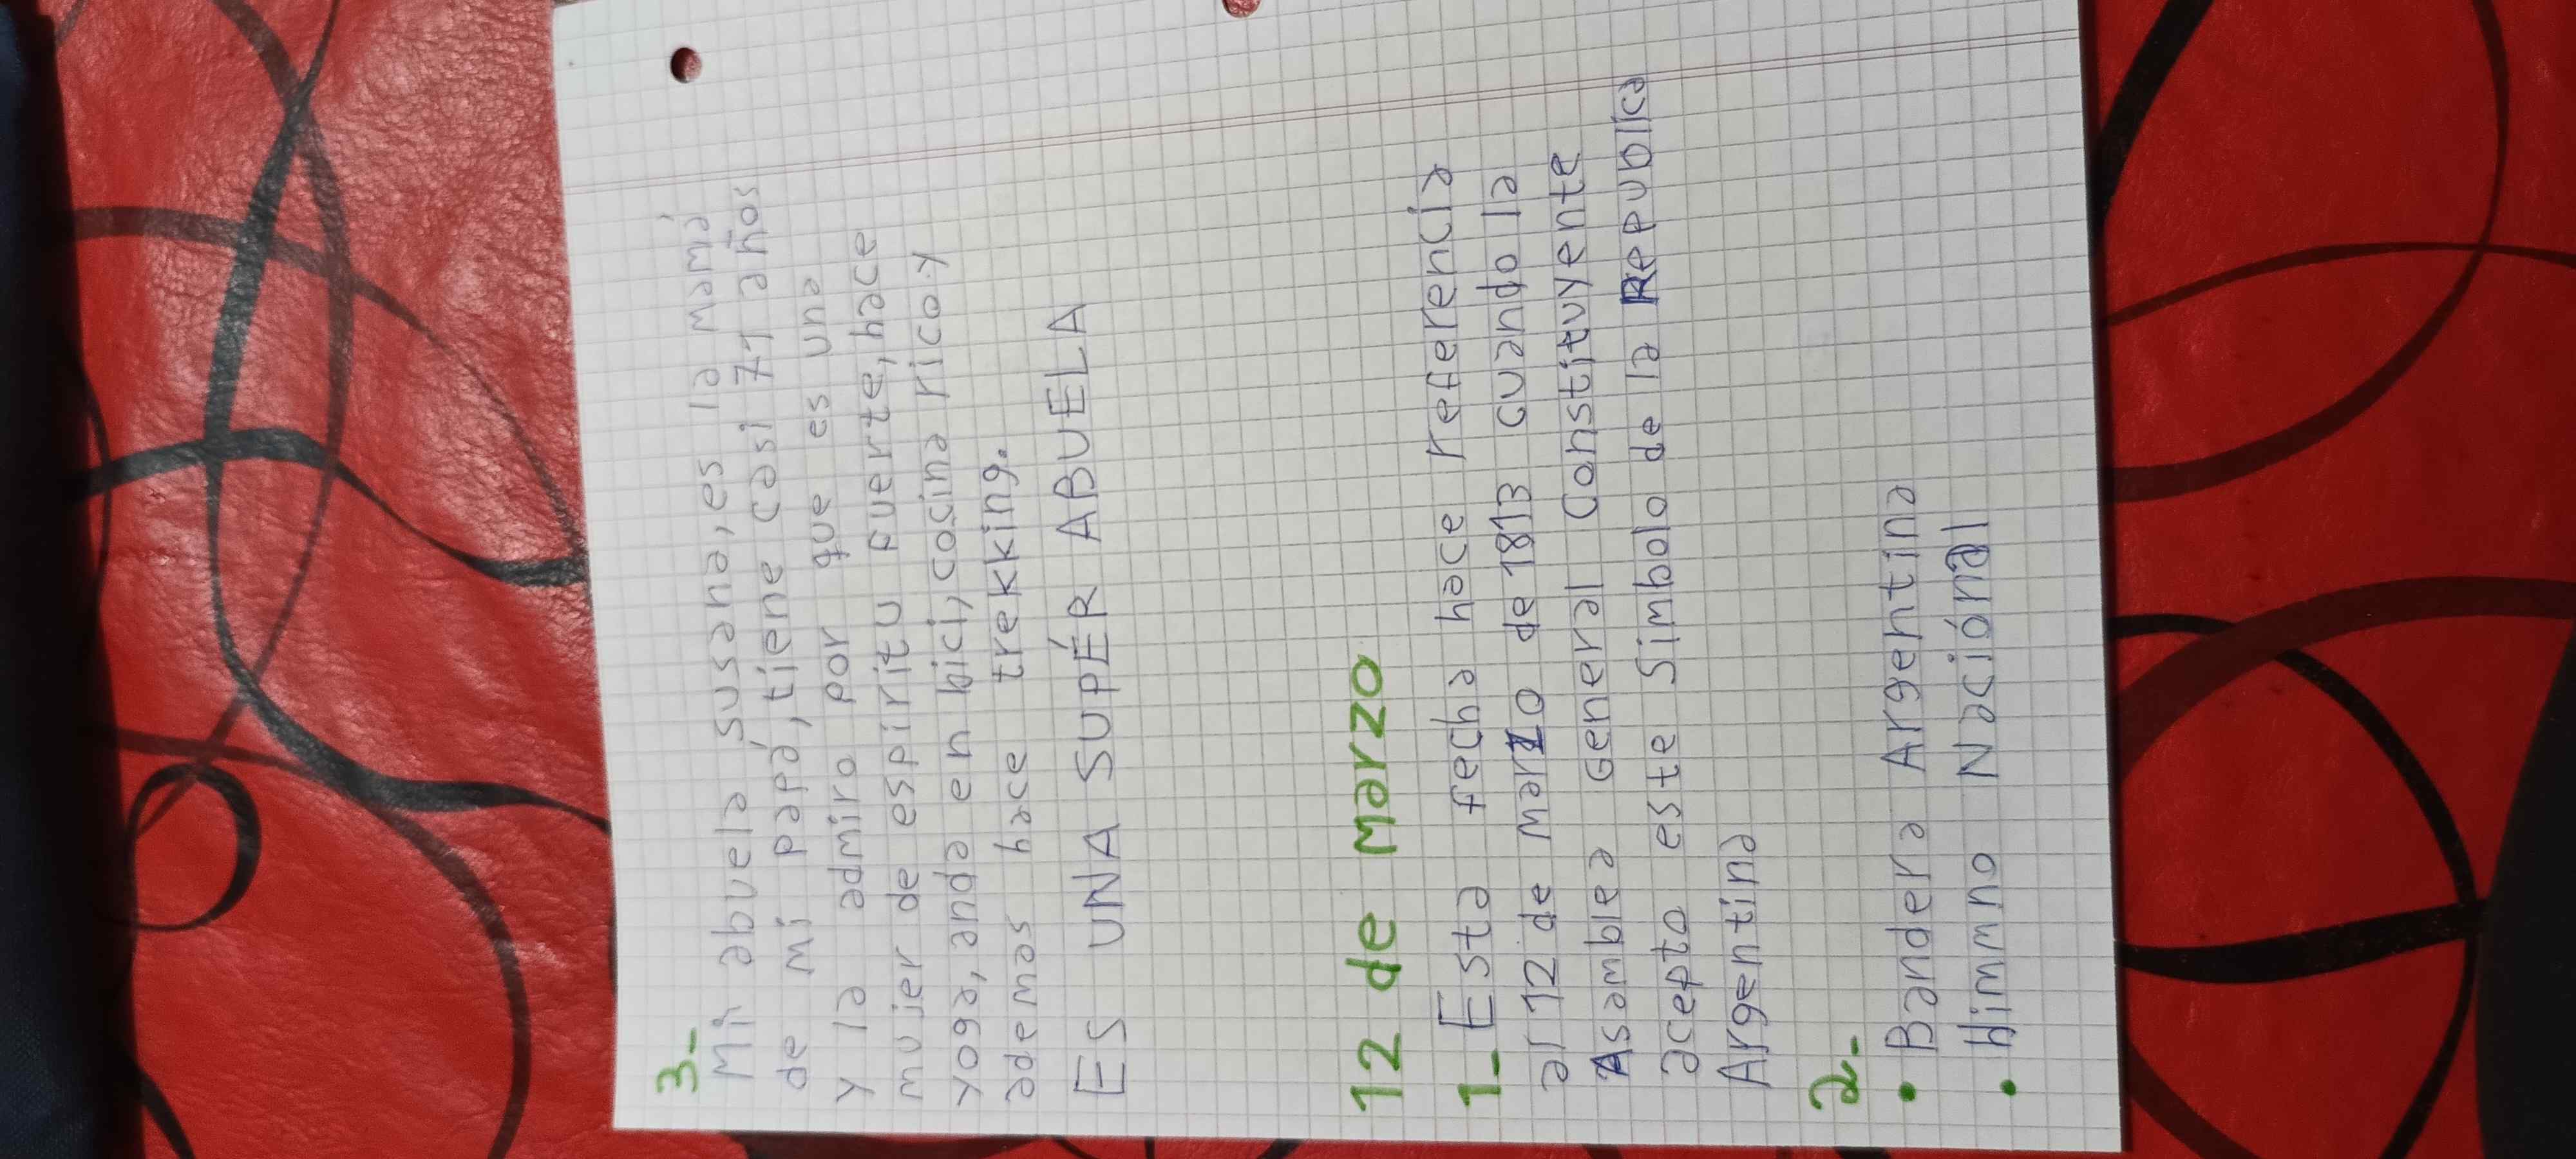 3-
Mi abuela susana, es la mamá
de mi papá, tiene casi 71 años
y la admiro por que es una
mujer de espiritu fuerte, hace
yoga, anda en bici, cocina rico y
ademas hace trekking.
ES UNA SUPÉR ABUELA
12 de Marzo
1- Esta fecha hace referencia
al 12 de marzo de 1813 cuando la
Asamblea General Constituyente
acepto este Simbolo de la Republica
Argentina
2-
• Bandera Argentina
• Himmno Naciónal